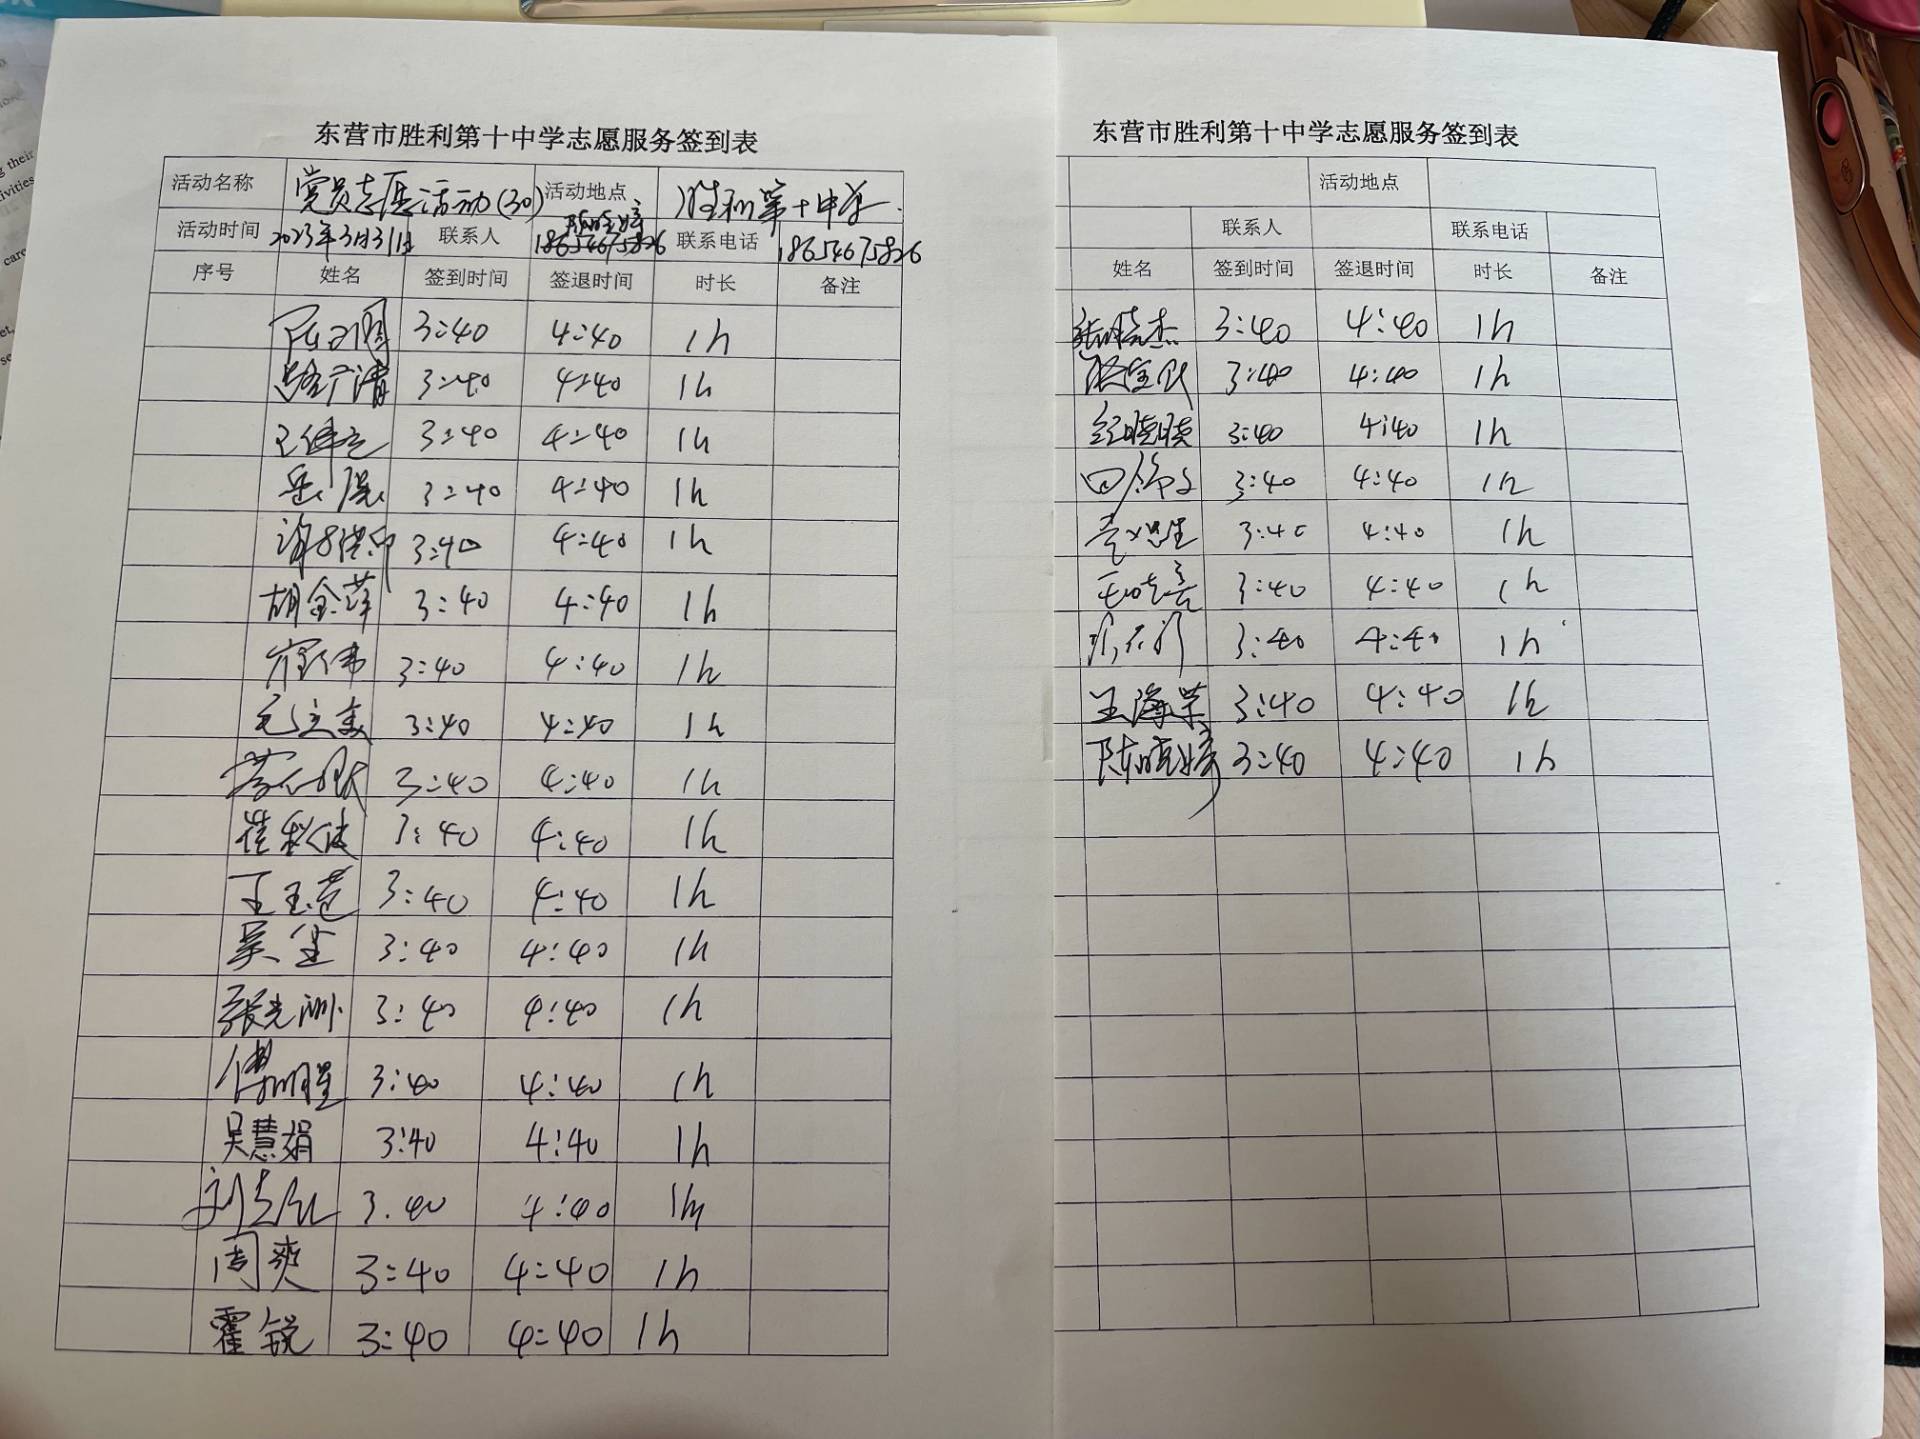 东营市胜利第十中学志愿服务签到表
活动名称 党员志愿活动(30) 活动地点 胜利第十中学
活动时间 2023年3月31日 联系人 陈晓婷 18654675826 联系电话 18654675826
序号 姓名 签到时间 签退时间 时长 备注
3:40 4:40 1h
3:40 4:40 1h
3:40 4:40 1h
3:40 4:40 1h
3:40 4:40 1h
胡金萍 3:40 4:40 1h
崔伟 3:40 4:40 1h
3:40 4:40 1h
3:40 4:40 1h
崔秋俊 3:40 4:40 1h
3:40 4:40 1h
3:40 4:40 1h
张光洲 3:40 4:40 1h
3:40 4:40 1h
吴慧娟 3:40 4:40 1h
3.40 4:40 1h
周爽 3:40 4:40 1h
霍锐 3:40 4:40 1h
东营市胜利第十中学志愿服务签到表
活动地点
联系人 联系电话
姓名 签到时间 签退时间 时长 备注
张晓杰 3:40 4:40 1h
3:40 4:40 1h
3:40 4:40 1h
3:40 4:40 1h
3:40 4:40 1h
3:40 4:40 1h
3:40 4:40 1h
王海荣 3:40 4:40 1h
陈晓婷 3:40 4:40 1h